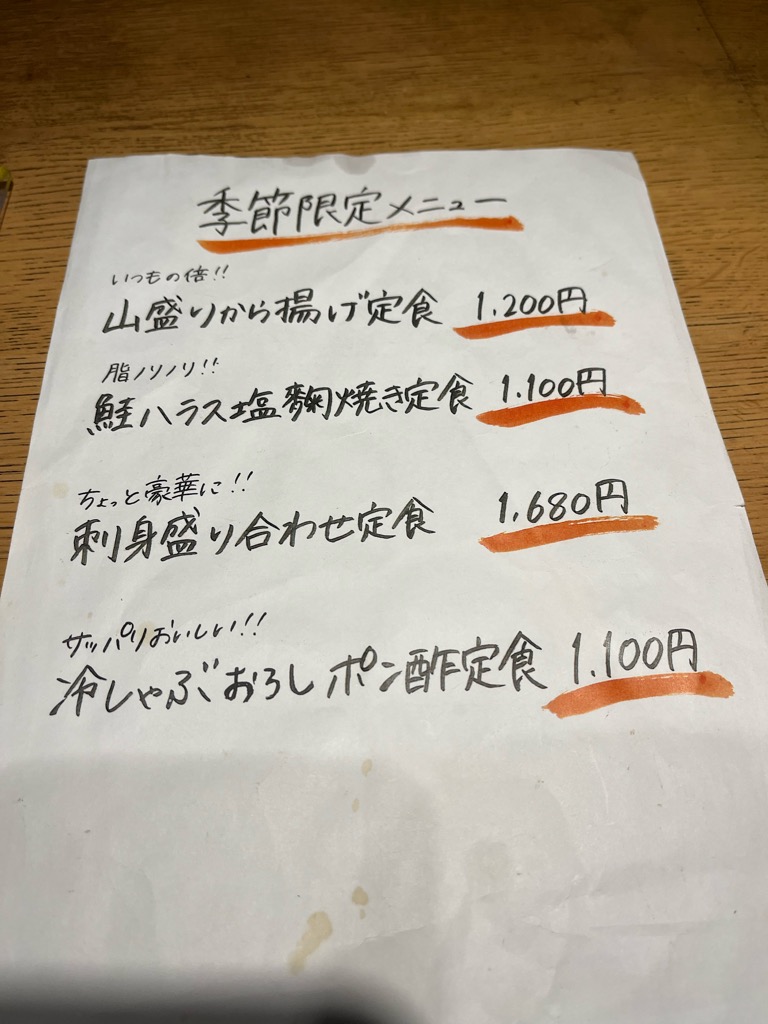 季節限定メニュー
いつもの倍!!
山盛りから揚げ定食 1.200円
脂ノリノリ!!
鮭ハラス塩麴焼き定食 1.100円
ちょっと豪華に!!
刺身盛り合わせ定食 1.680円
サッパリおいしい!!
冷しゃぶおろしポン酢定食 1.100円